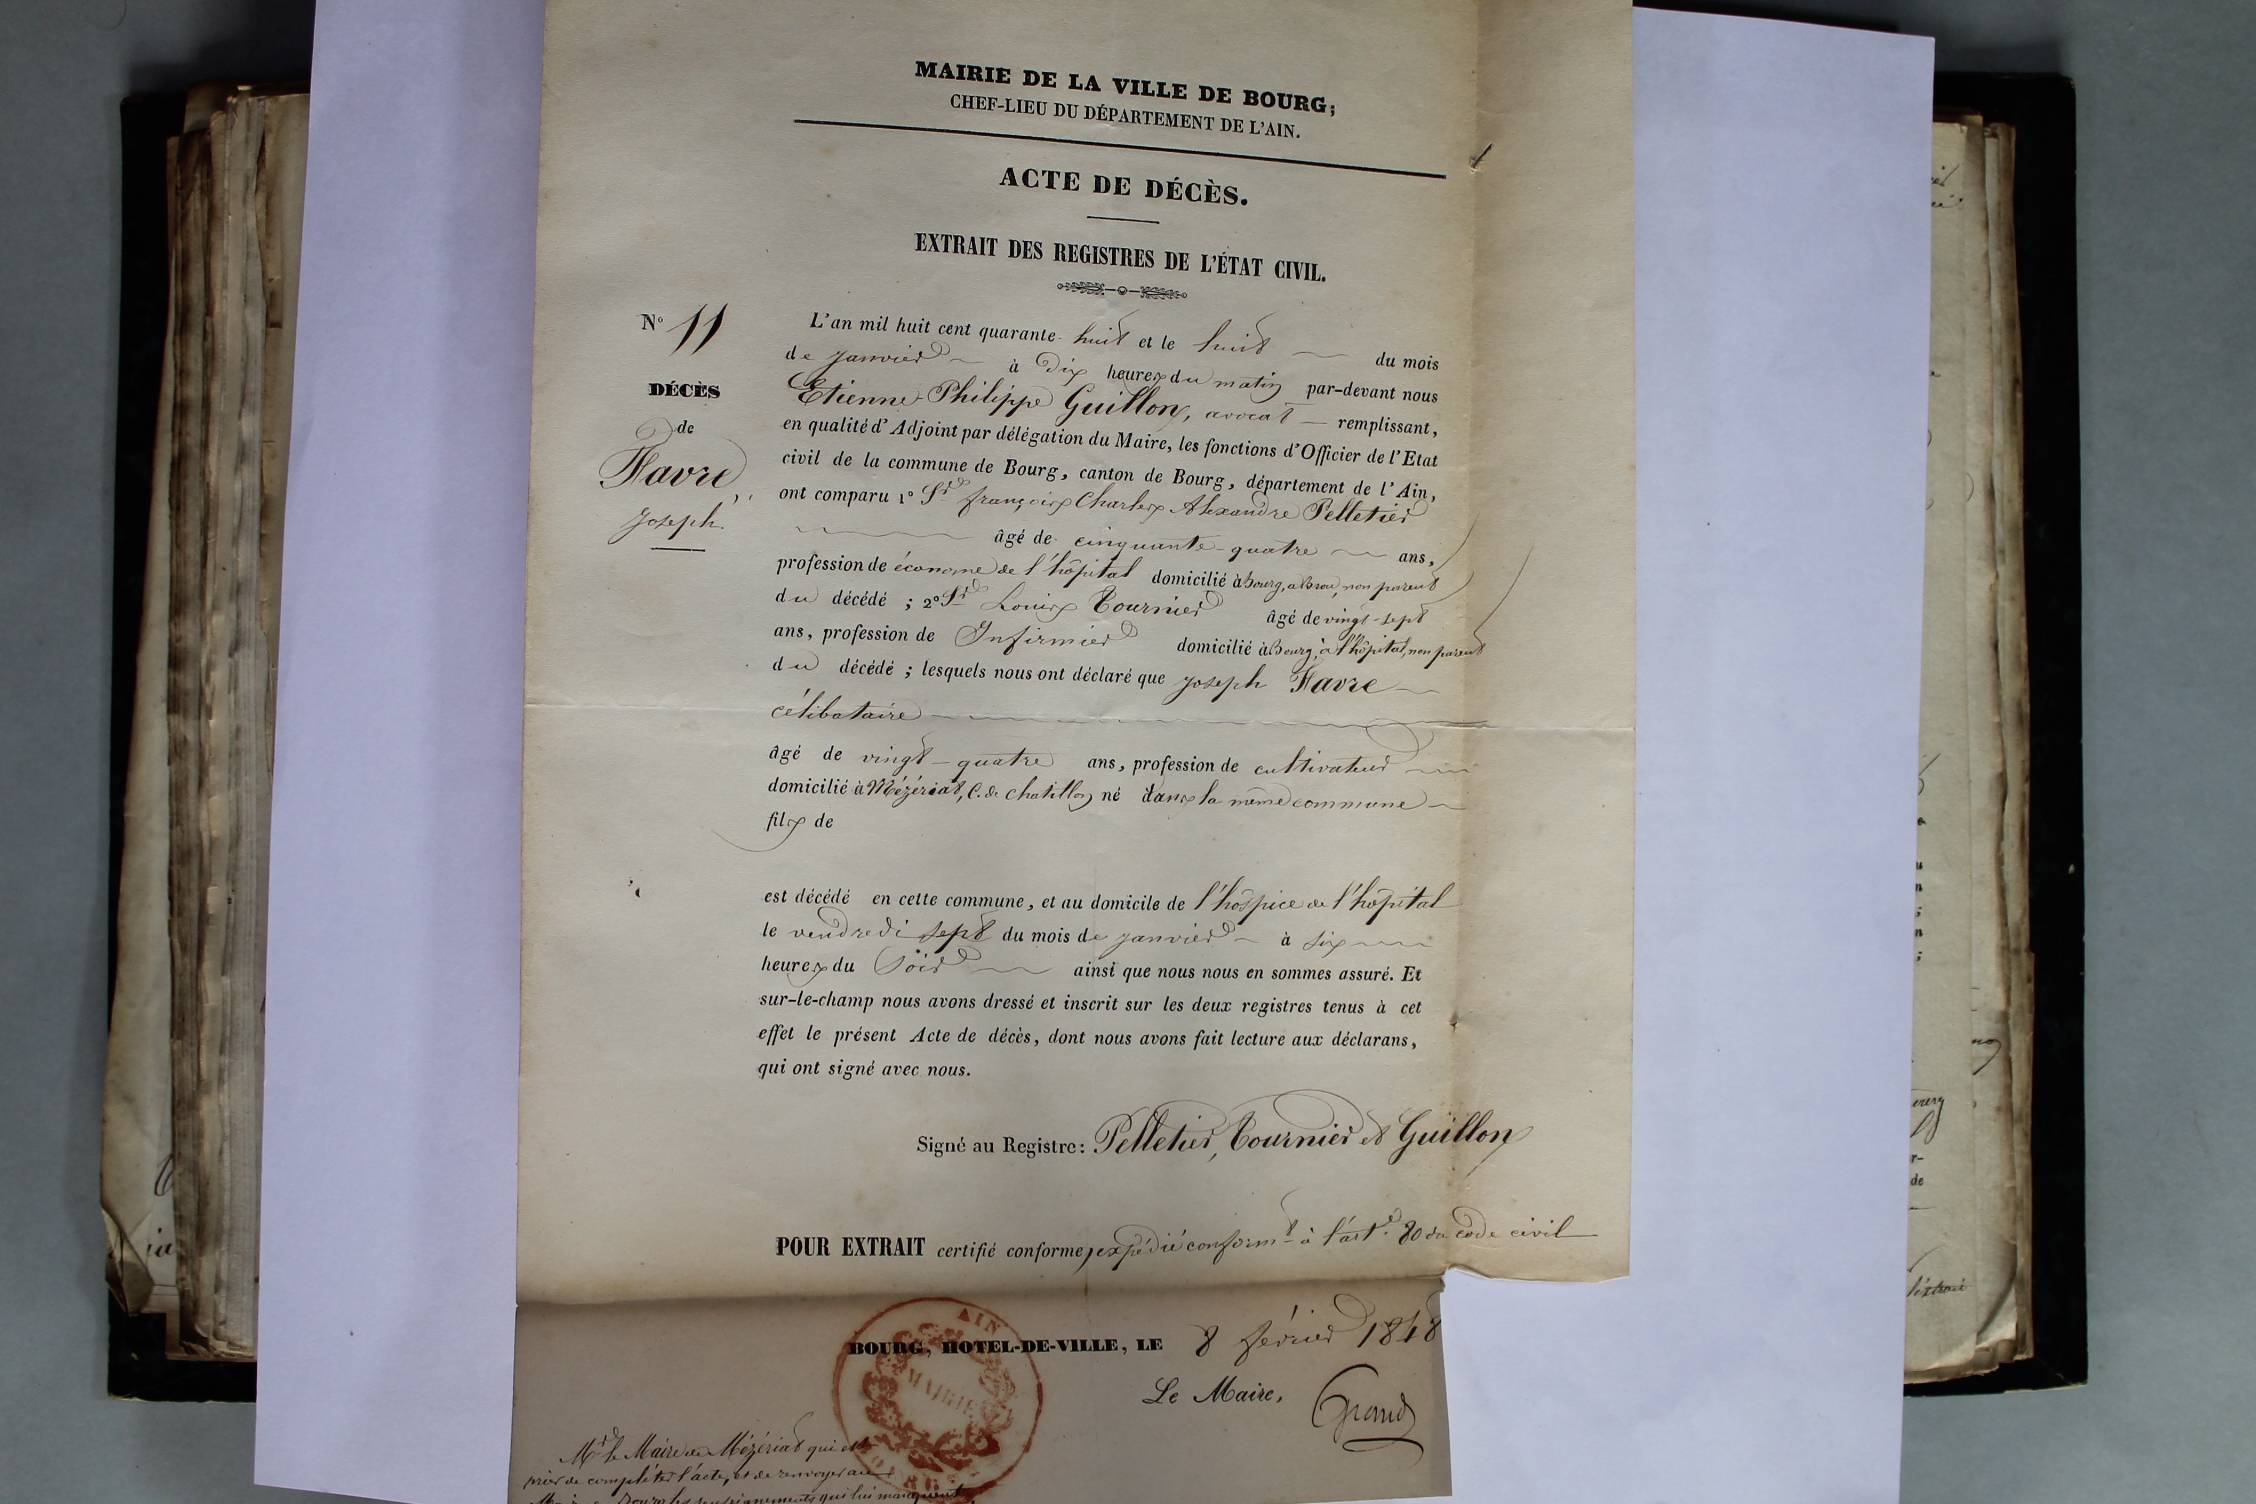 MAIRIE DE LA VILLE DE BOURG;
CHEF-LIEU DU DÉPARTEMENT DE L'AIN.
ACTE DE DÉCÈS.
EXTRAIT DES REGISTRES DE L'ÉTAT CIVIL.
N° 11
DÉCÈS
de
Favre,
Joseph.
L'an mil huit cent quarante huit et le huit du mois
de janvier à dix heures du matin par-devant nous
Etienne Philippe Guillon, avocat remplissant,
en qualité d'Adjoint par délégation du Maire, les fonctions d'Officier de l'Etat
civil de la commune de Bourg, canton de Bourg, département de l'Ain,
ont comparu 1° Sr françois Charles Alexandre Pelletier
âgé de cinquante-quatre ans,
profession de économe de l'hôpital domicilié à Bourg, à Brou, non parent
du décédé ; 2° Sr Louis Tournier âgé de vingt-sept
ans, profession de Infirmier domicilié à Bourg, à l'hôpital, non parent
du décédé ; lesquels nous ont déclaré que Joseph Favre
célibataire
âgé de vingt-quatre ans, profession de cultivateur
domicilié à Mézériat, C. de Chatillon né dans la même commune
fils de
est décédé en cette commune, et au domicile de l'hospice de l'hôpital
le vendredi sept du mois de janvier à six
heures du soir ainsi que nous nous en sommes assuré. Et
sur-le-champ nous avons dressé et inscrit sur les deux registres tenus à cet
effet le présent Acte de décès, dont nous avons fait lecture aux déclarans,
qui ont signé avec nous.
Signé au Registre: Pelletier, Tournier et Guillon
POUR EXTRAIT certifié conforme, expédié conformt à l'art. 80 du code civil
BOURG, HOTEL-DE-VILLE, LE 8 février 1848
Le Maire,
Grand
AIN
MAIRIE
Mr le Maire de Mézériat qui est
prié de compléter l'acte, et de renvoyer au
Maire de Bourg les renseignements qui lui manquent